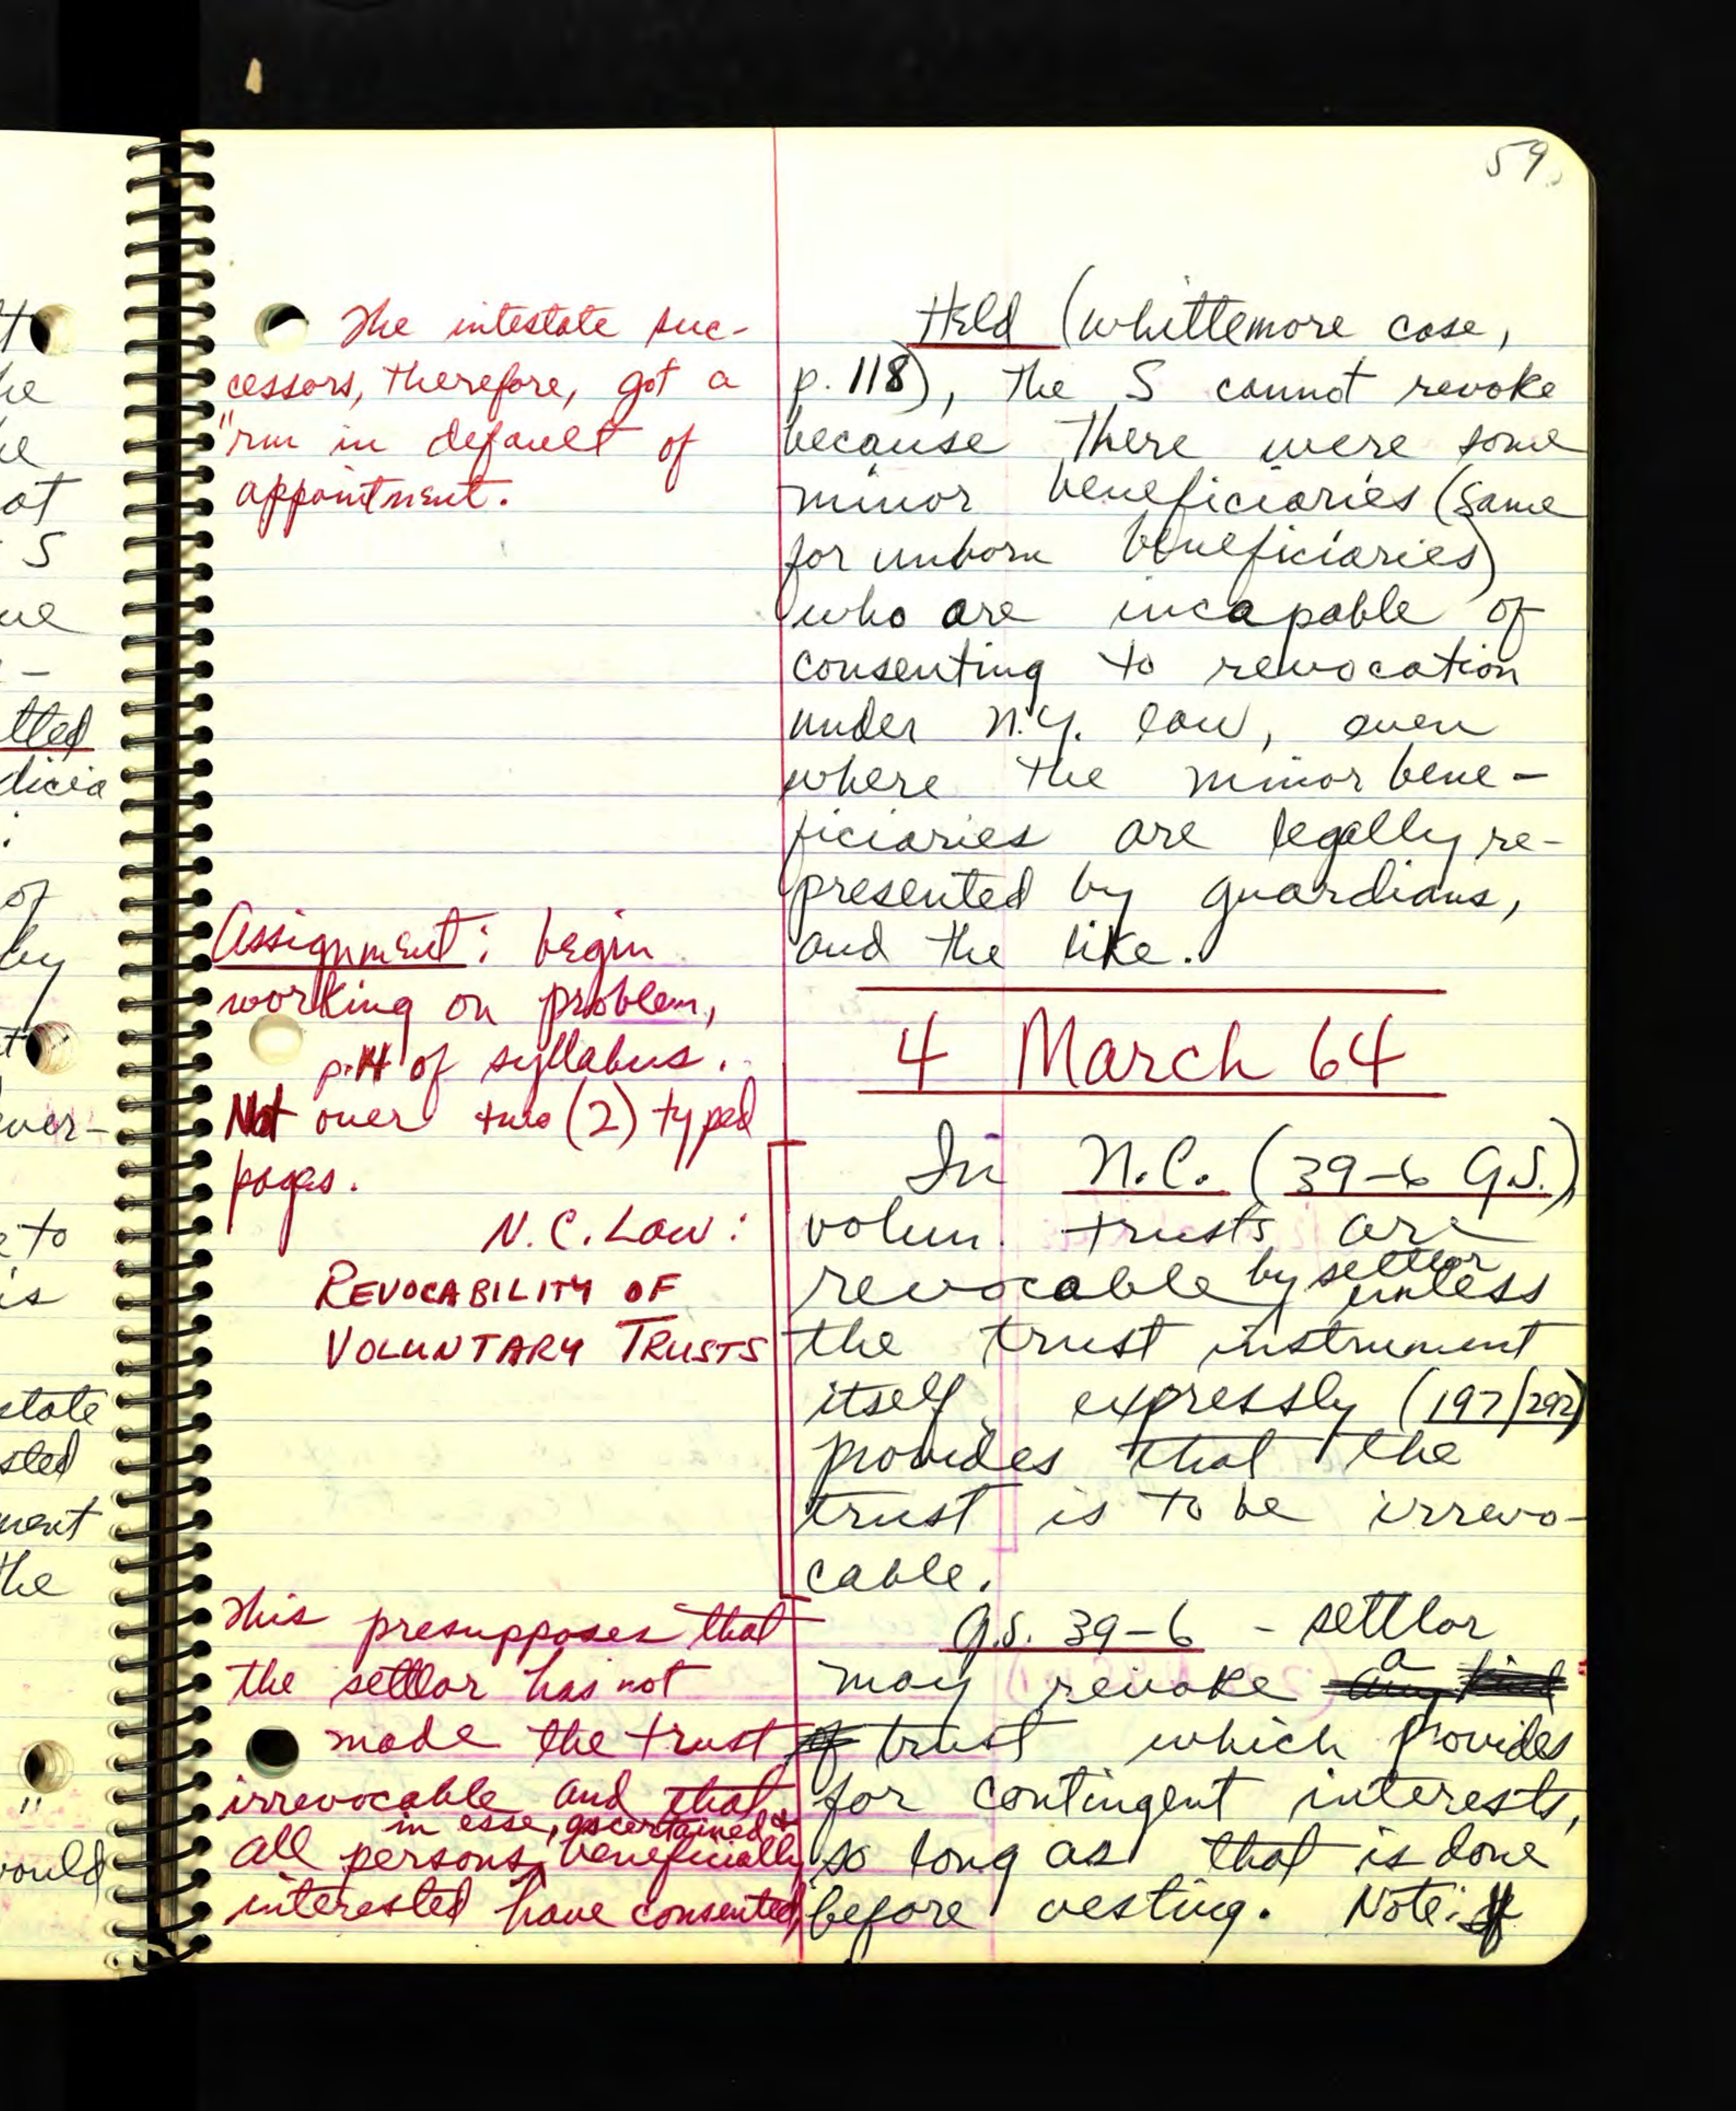 59.
The intestate suc-
cessors, therefore, got a
"rm in default of
appointment.
Assignment: begin
working on problem,
p. 14 of syllabus.
Not over two (2) typed
pages.
N.C. Law:
REVOCABILITY OF
VOLUNTARY TRUSTS
This presupposes that
the settlor has not
made the trust
irrevocable and that
in esse, ascertained &
all persons beneficially
interested have consented.
Held (Whittemore case,
p. 118), the S cannot revoke
because there were some
minor beneficiaries (same
for unborn beneficiaries)
who are incapable of
consenting to revocation
under N.Y. law, even
where the minor bene-
ficiaries are legally re-
presented by guardians,
and the like.
4 March 64
In N.C. (39-6 G.S.)
volun. trusts are
revocable by settlor unless
the trust instrument
itself expressly (197/292)
provides that the
trust is to be irrevo-
cable.
G.S. 39-6 - settlor
may revoke a
trust which provides
for contingent interests,
so long as that is done
before vesting. Note: If
tled
dicia
of
by
ver-
to
is
state
sted
ment
the
would